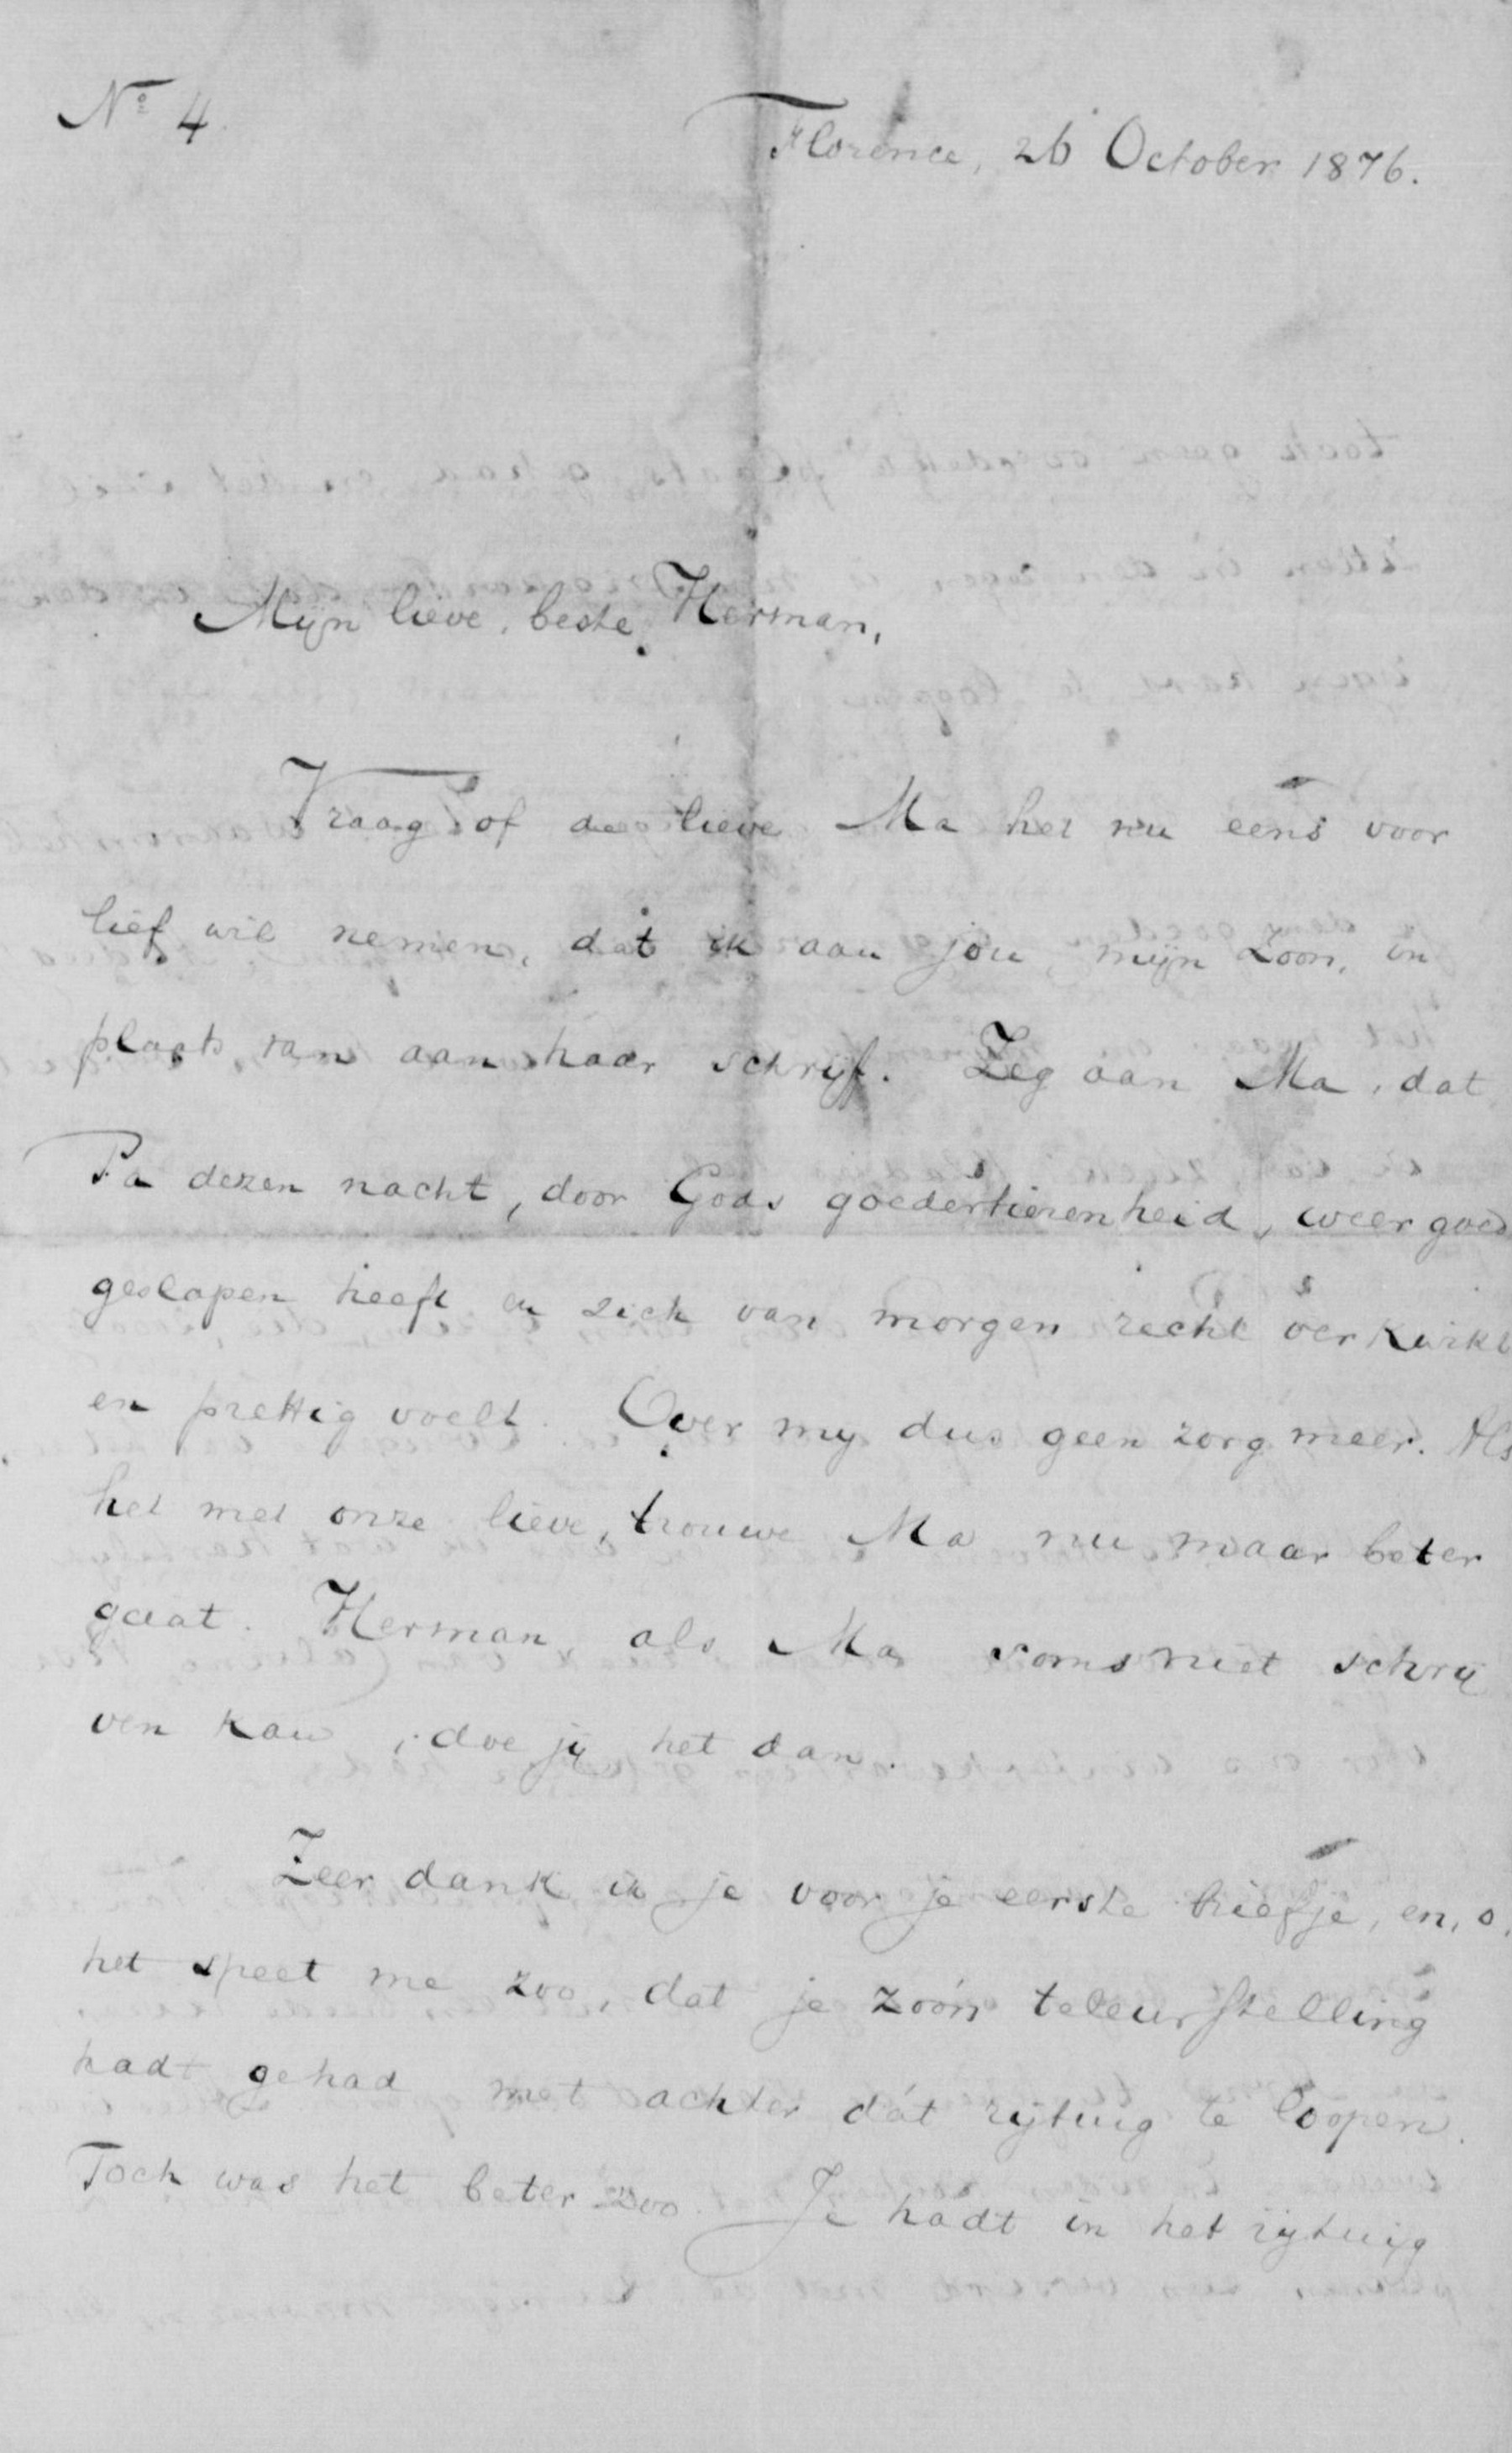 No 4.
Florence, 26 October 1876.
Mijn lieve, beste Herman,
Vraag of de lieve Ma het nu eens voor
lief wil nemen, dat ik aan jou, mijn Zoon, in
plaats van aan haar schrijf. Zeg aan Ma, dat
Pa dezen nacht, door Gods goedertierenheid, weer goed
geslapen heeft en zich van morgen recht verkwikt
en prettig voelt. Over my dus geen zorg meer. Als
het met onze lieve, trouwe Ma nu maar beter
gaat. Herman, als Ma soms niet schrij
ven kan, doe jij het dan.
Zeer dank ik je voor je eerste briefje, en, o,
het speet me zoo, dat je zoó'n teleurstelling
hadt gehad met achter dát rijtuig te loopen.
Toch was het beter zoo. Je hadt in het rijtuig